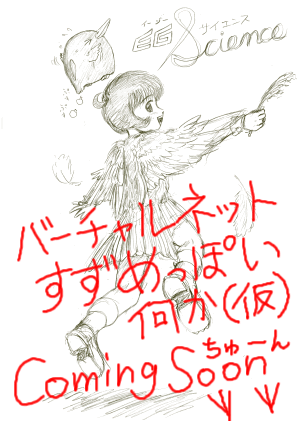 イージー サイエンス
EG Science
バーチャルネット
すずめっぽい
何か(仮)
ちゅーん
Coming Soon